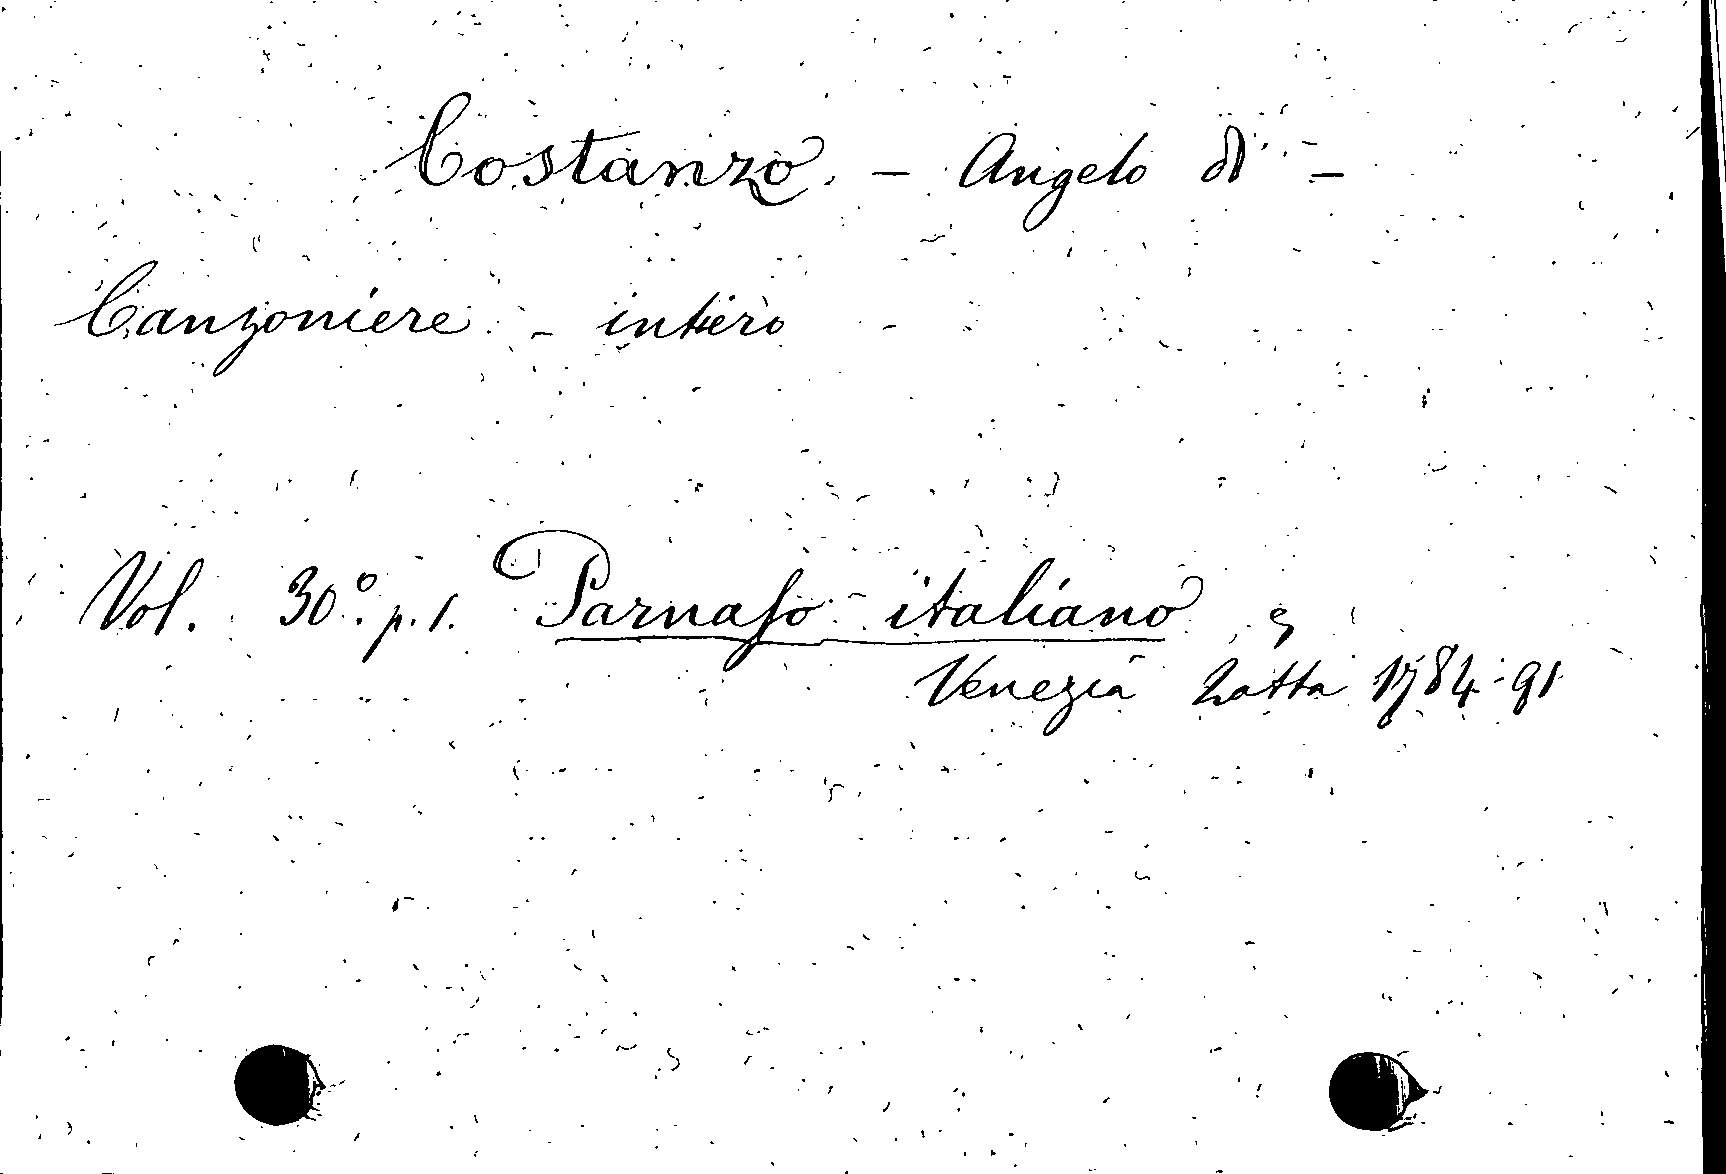 Costanzo - Angelo di -
Canzoniere - intiero
Vol. 30º. p. 1. Parnaso italiano
Venezia Zatta 1784-91